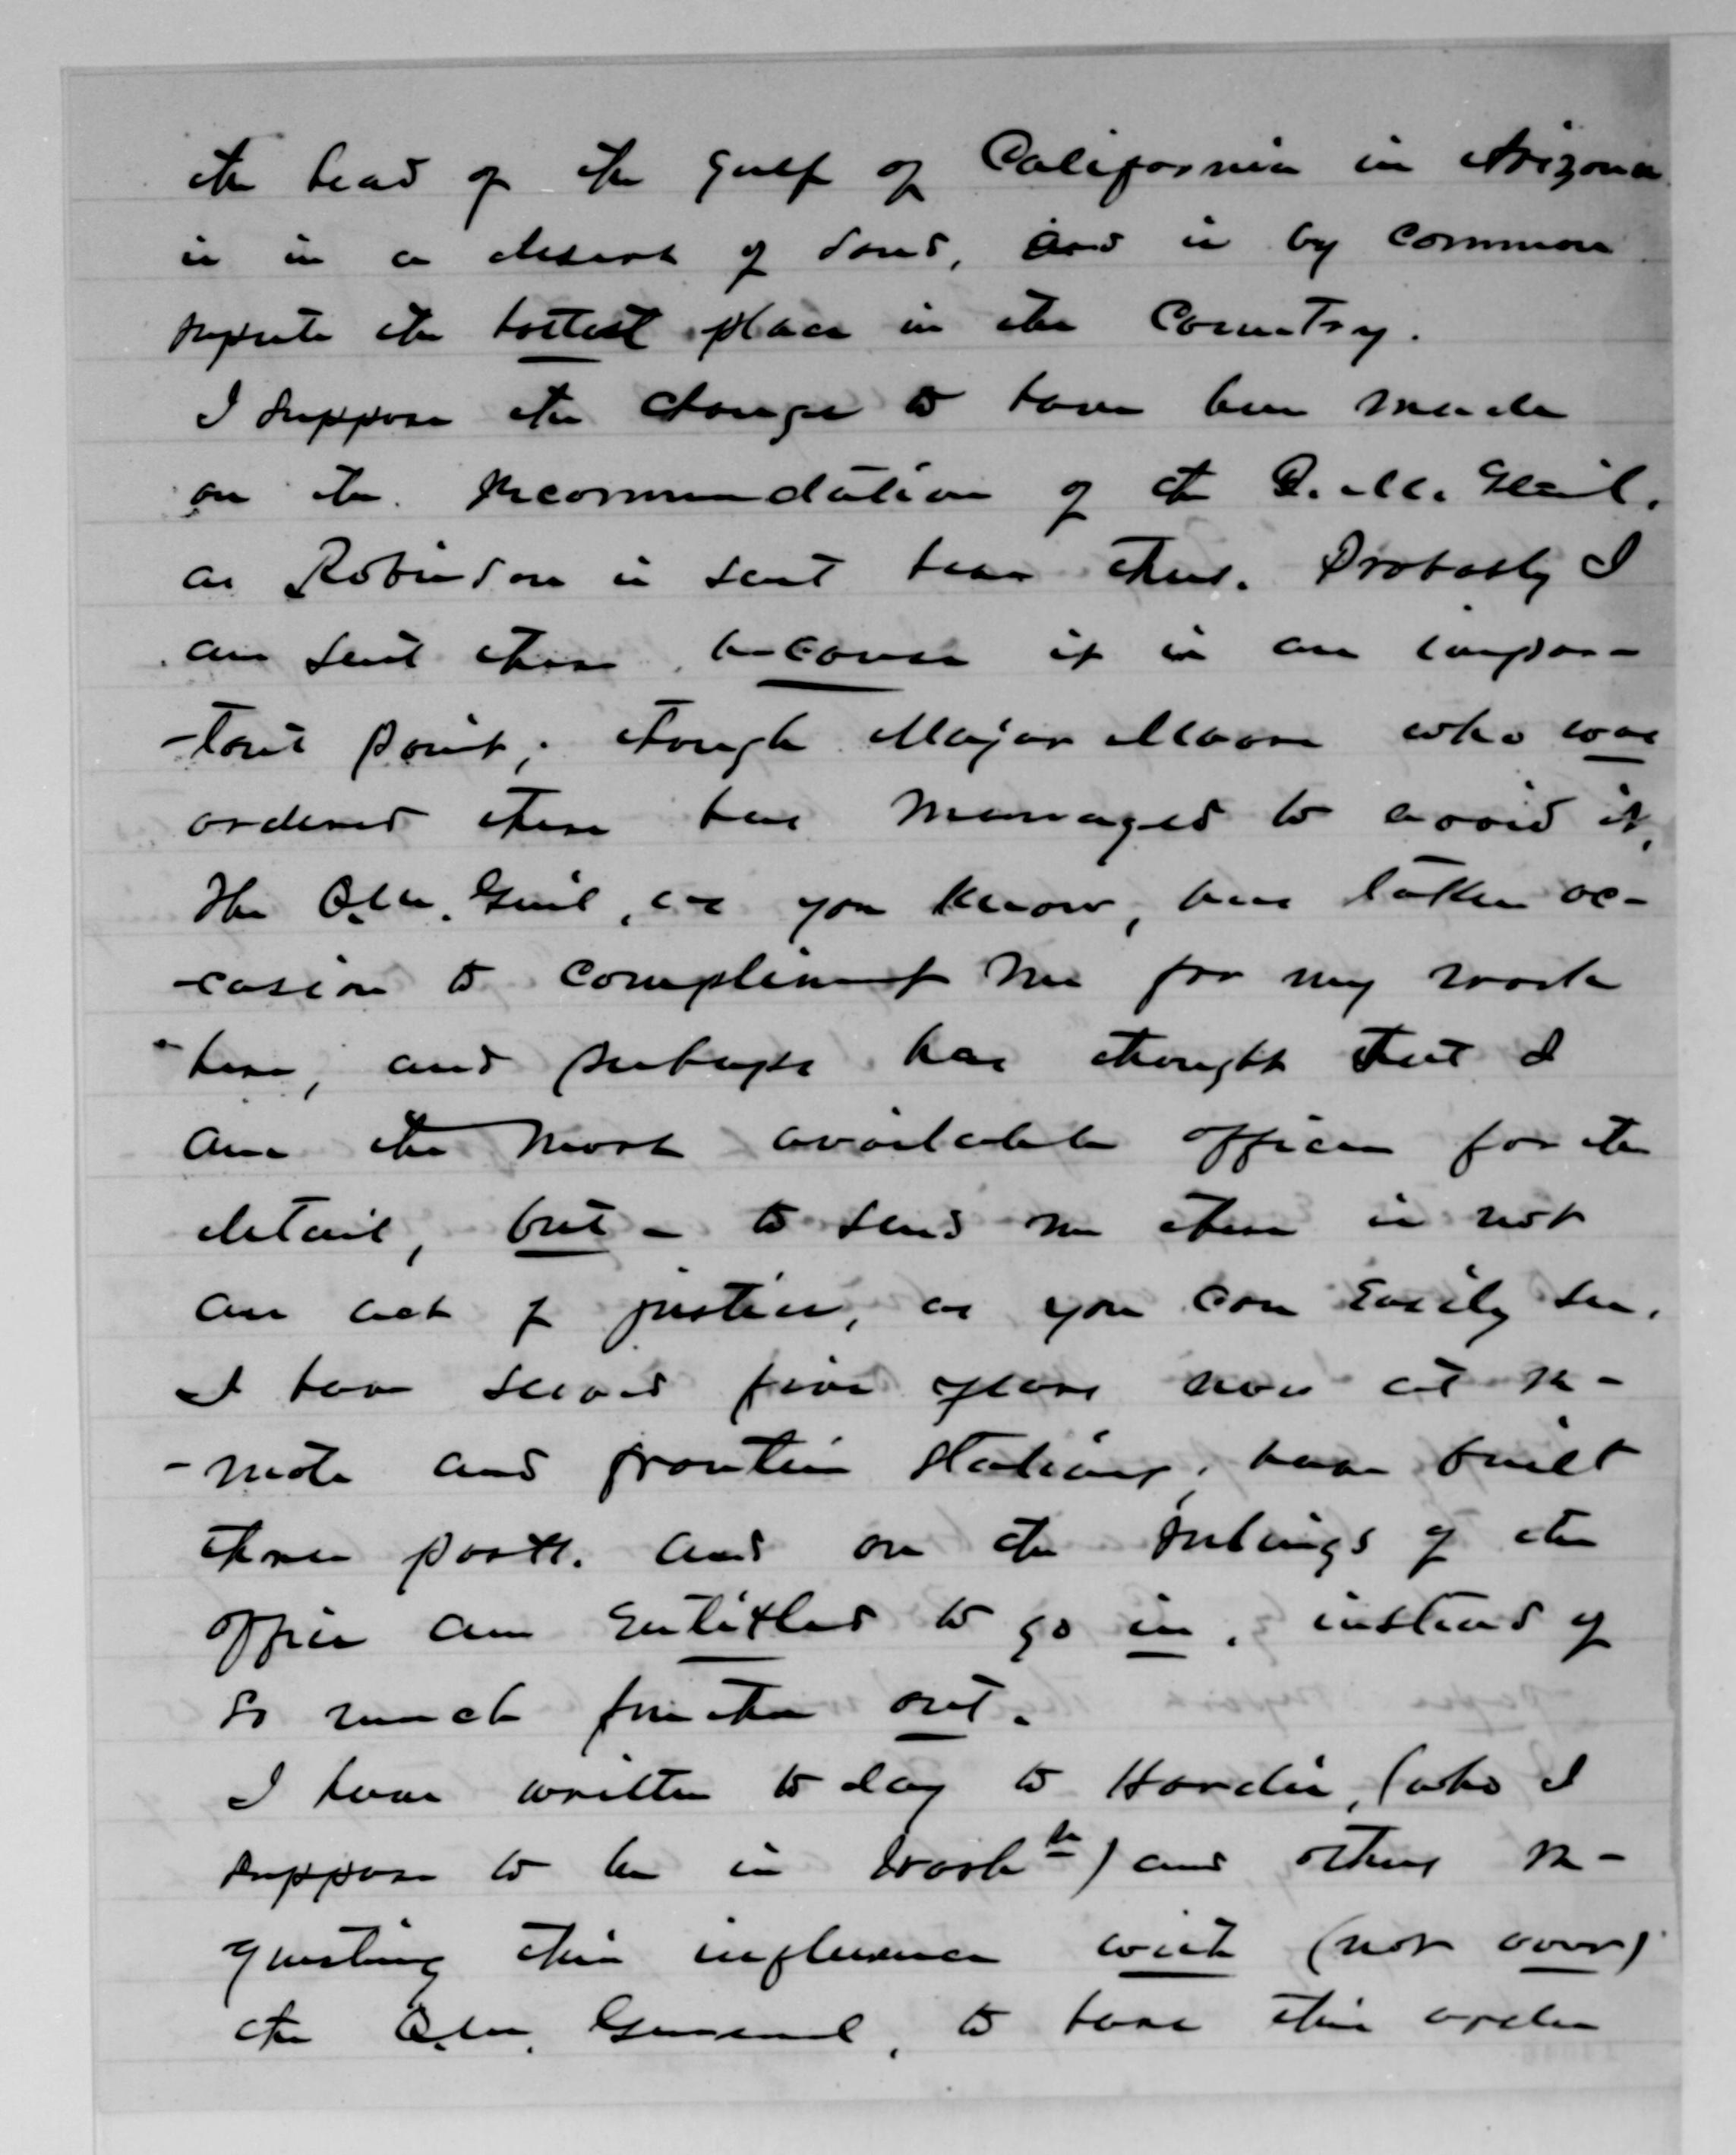 the head of the Gulf of California in Arizona
is in a desert of sand, and is by common
repute the hottest place in the Country.
I suppose the change to have been made
on the recommendation of the Q. M. Genl.
as Robinson is sent here thus. Probably I
am sent there because it is an impor-
-tant point; though Major Moore who was
ordered there has managed to avoid it.
The Q.M. Genl, as you know, has taken oc-
-casion to compliment me for my work
here, and perhaps has thought that I
am the most available officer for the
detail, but - to send me there is not
an act of justice, as you can easily see.
I have served five years now at re-
-mote and frontier stations, have built
three posts. and on the rulings of the
office am entitled to go in, instead of
so much further out.
I have written to day to Hardie, (who I
suppose to be in Washn) and others re-
questing their influence with (not over)
the Q.M. General, to have this order